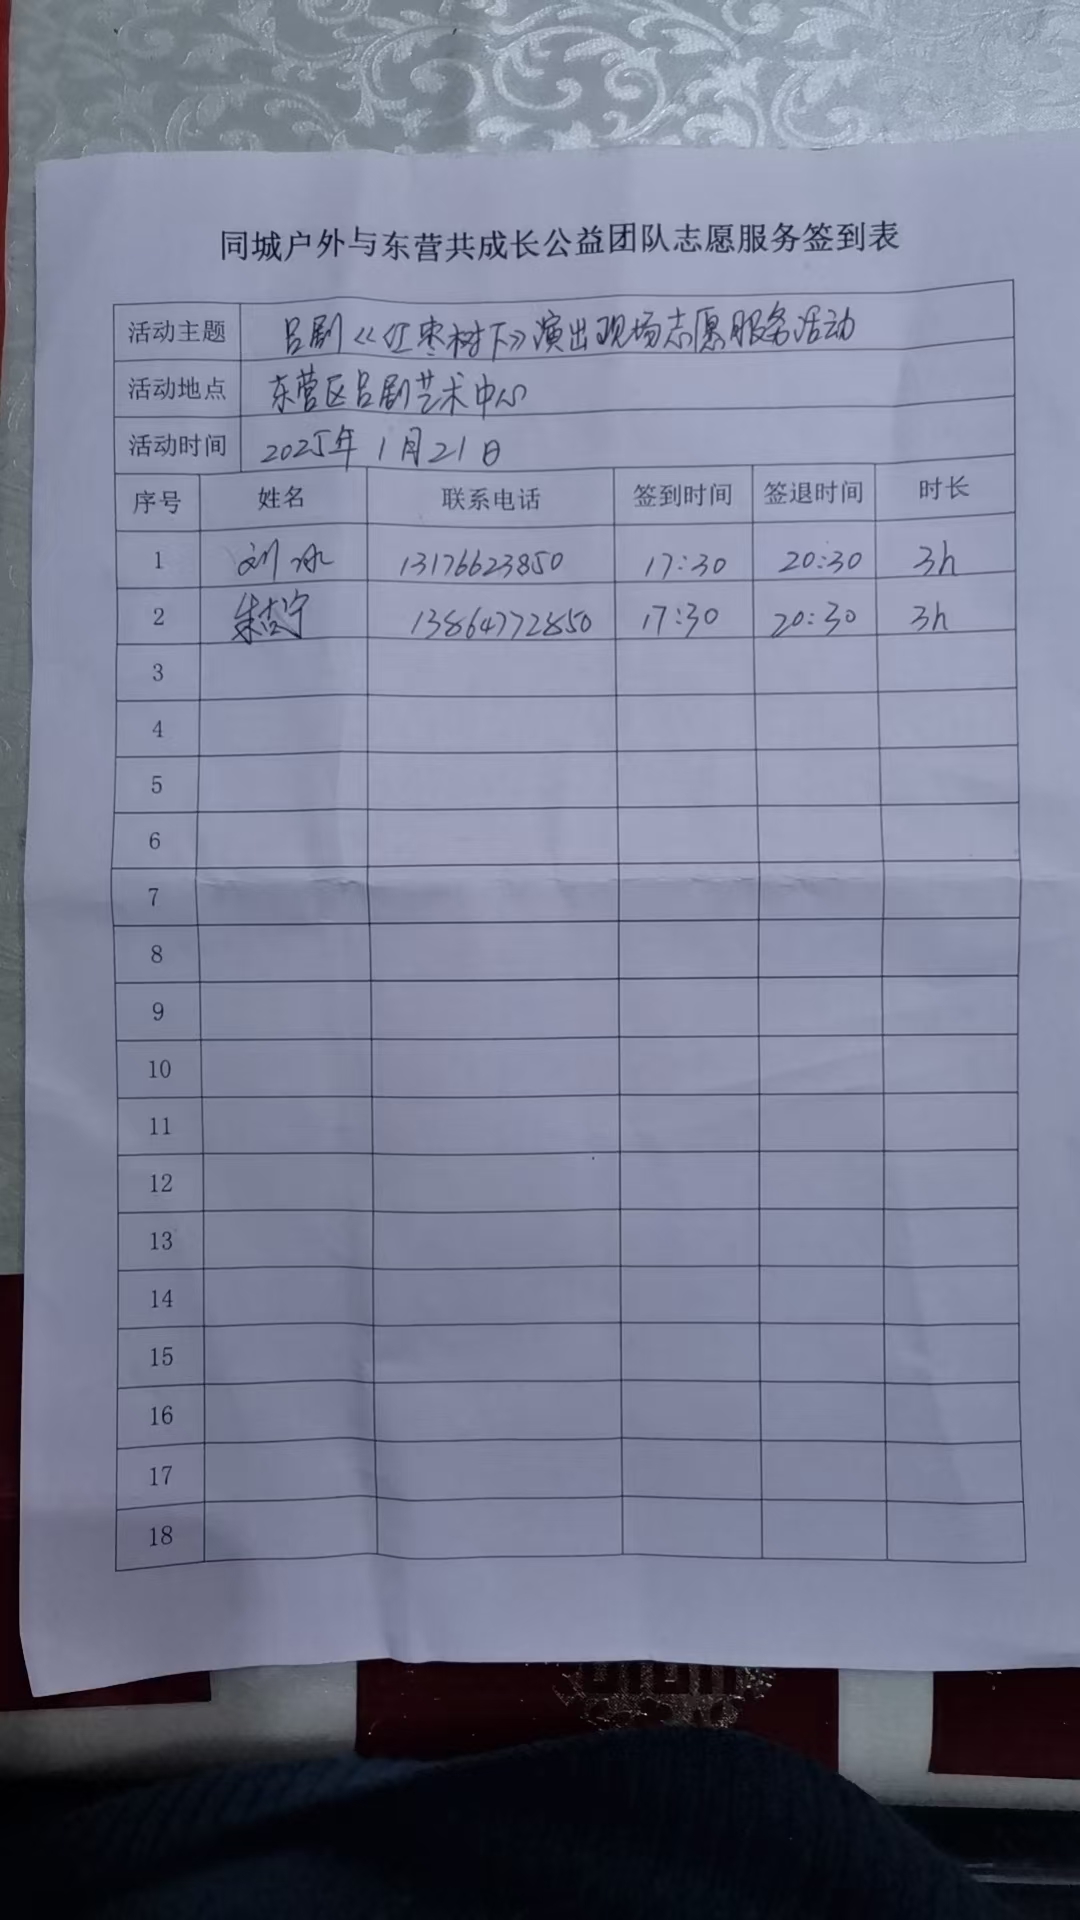 同城户外与东营共成长公益团队志愿服务签到表
活动主题 吕剧《红枣树下》演出现场志愿服务活动
活动地点 东营区吕剧艺术中心
活动时间 2025年1月21日
序号 姓名 联系电话 签到时间 签退时间 时长
1 刘冰 13176623850 17:30 20:30 3h
2 朱吉宁 13864772850 17:30 20:30 3h
3
4
5
6
7
8
9
10
11
12
13
14
15
16
17
18